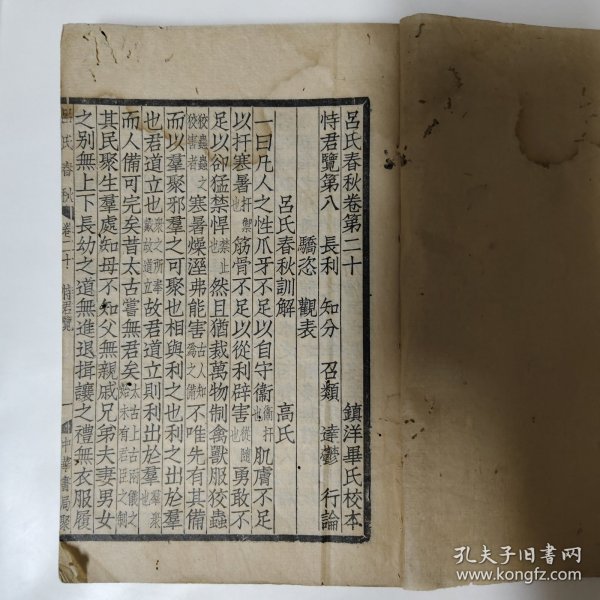 呂氏春秋卷第二十　鎮洋畢氏校本
恃君覽第八　長利　知分　召類　達鬱　行論
驕恣　觀表
呂氏春秋訓解　高氏
一曰凡人之性爪牙不足以自守衞衞扞也肌膚不足
以扞寒暑扞禦也筋骨不足以從利辟害從隨也勇敢不
足以卻猛禁悍禁止也然且猶裁萬物制禽獸服狡蟲
狡蟲蟲之狡害者寒暑燥溼弗能害古人知爲之備不唯先有其備
而以羣聚邪羣之可聚也相與利之也利之出於羣
也君道立也衆之所奉戴故道立故君道立則利出於羣羣衆也
而人備可完矣昔太古嘗無君矣太古上古兩儀之始未有君臣之制
其民聚生羣處知母不知父無親戚兄弟夫妻男女
之別無上下長幼之道無進退揖讓之禮無衣服履
呂氏春秋　卷二十　恃君覽　一　中華書局聚
孔夫子旧书网
www.kongfz.com